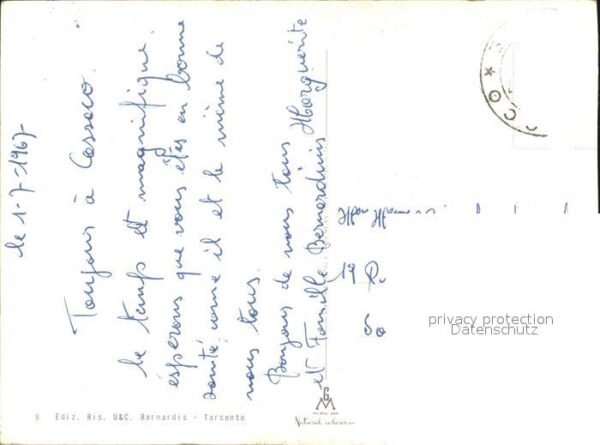 le 1-7-1967-
Toujours à Cassaco.
le temps et magnifique.
ésperons que vous étes en bonne
santé, come il et le même de
nous tous.
Bonjour de nous tous
et Famille Bernardinis Marguerite
19 R.
privacy protection
Datenschutz
9 Ediz. Ris. U&C. Bernardis - Tarcento